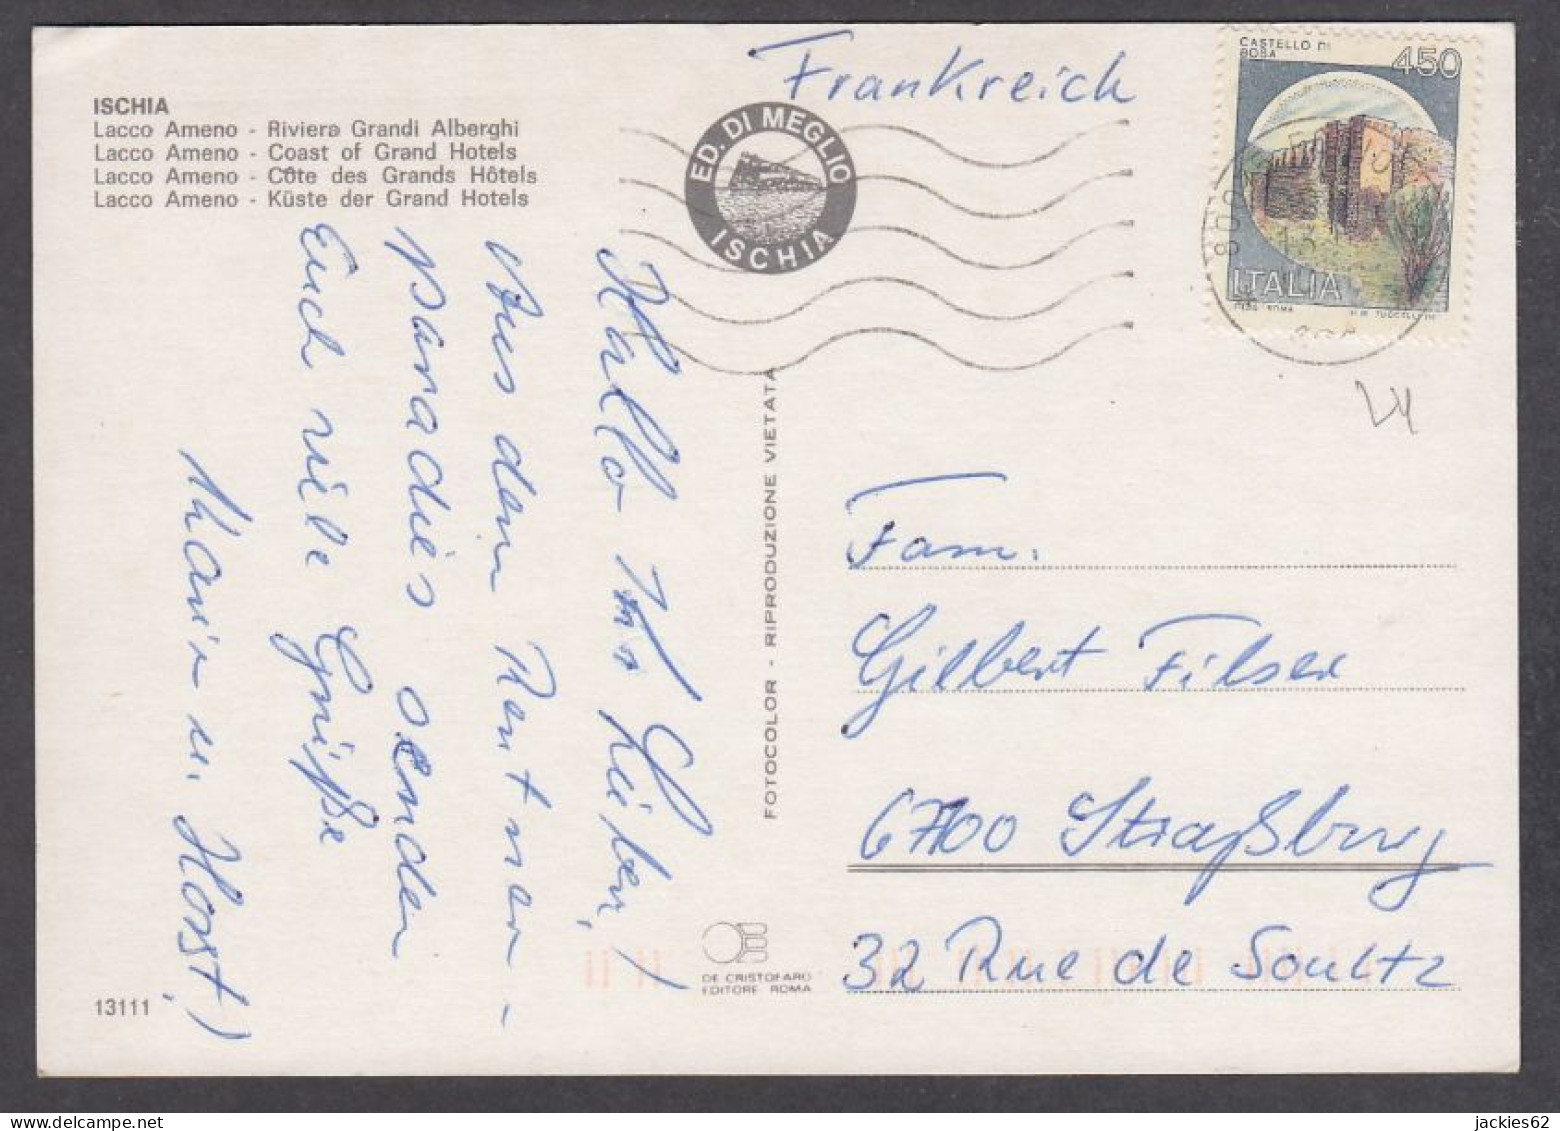 ISCHIA
Lacco Ameno - Riviera Grandi Alberghi
Lacco Ameno - Coast of Grand Hotels
Lacco Ameno - Côte des Grands Hôtels
Lacco Ameno - Küste der Grand Hotels
Hallo Ihr Lieben,
Aus dem Rentner-
paradies senden
Euch viele Grüße
u. Horst
13111
ED. DI MEGLIO
ISCHIA
FOTOCOLOR - RIPRODUZIONE VIETATA
DE CRISTOFARO
EDITORE ROMA
Frankreich
CASTELLO DI
BOSA
450
ITALIA
Fam.
Gilbert Filser
6700 Straßburg
32 Rue de Soultz
jackies62